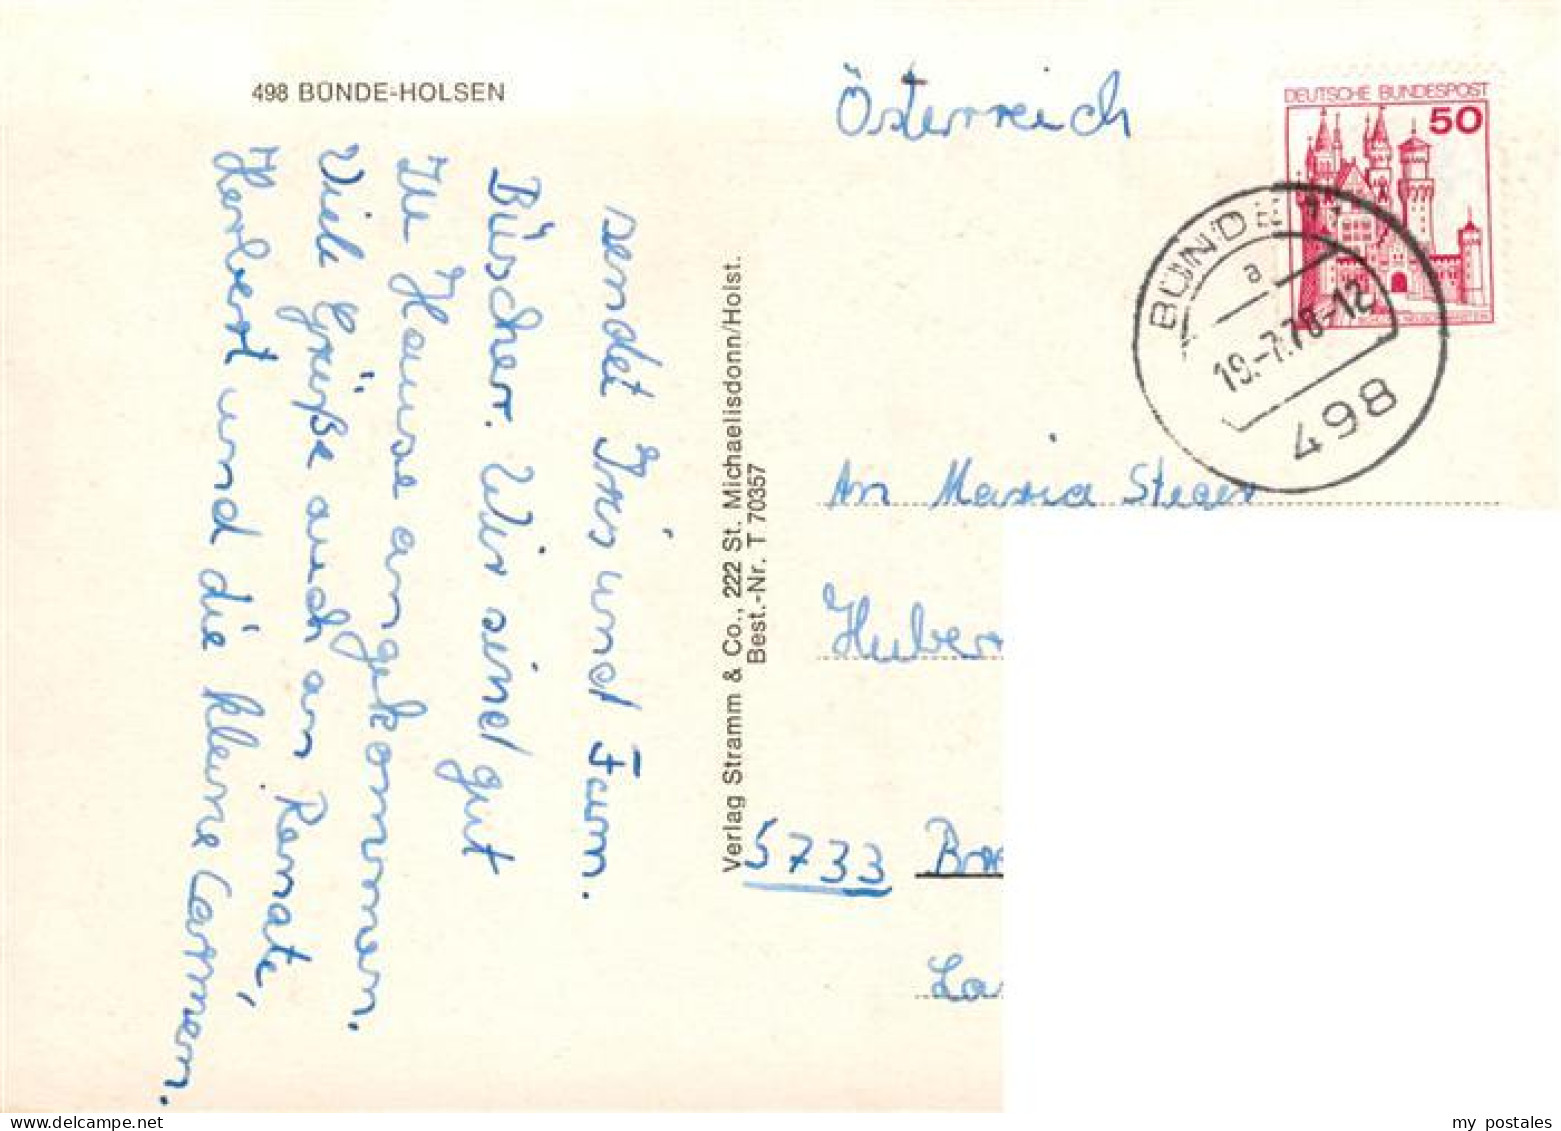 498 BÜNDE-HOLSEN
sendet Iris und Fam.
Büscher. Wir sind gut
zu Hause angekommen.
Viele Grüße auch an Renate,
Herbert und die kleine Carmen.
Verlag Stramm & Co., 222 St. Michaelisdonn/Holst.
Best.-Nr. T 70357
Österreich
DEUTSCHE BUNDESPOST
50
BÜNDE
a
19.-7.78-12
498
An Maria Steger
Huber
5733 Br
La
my postales